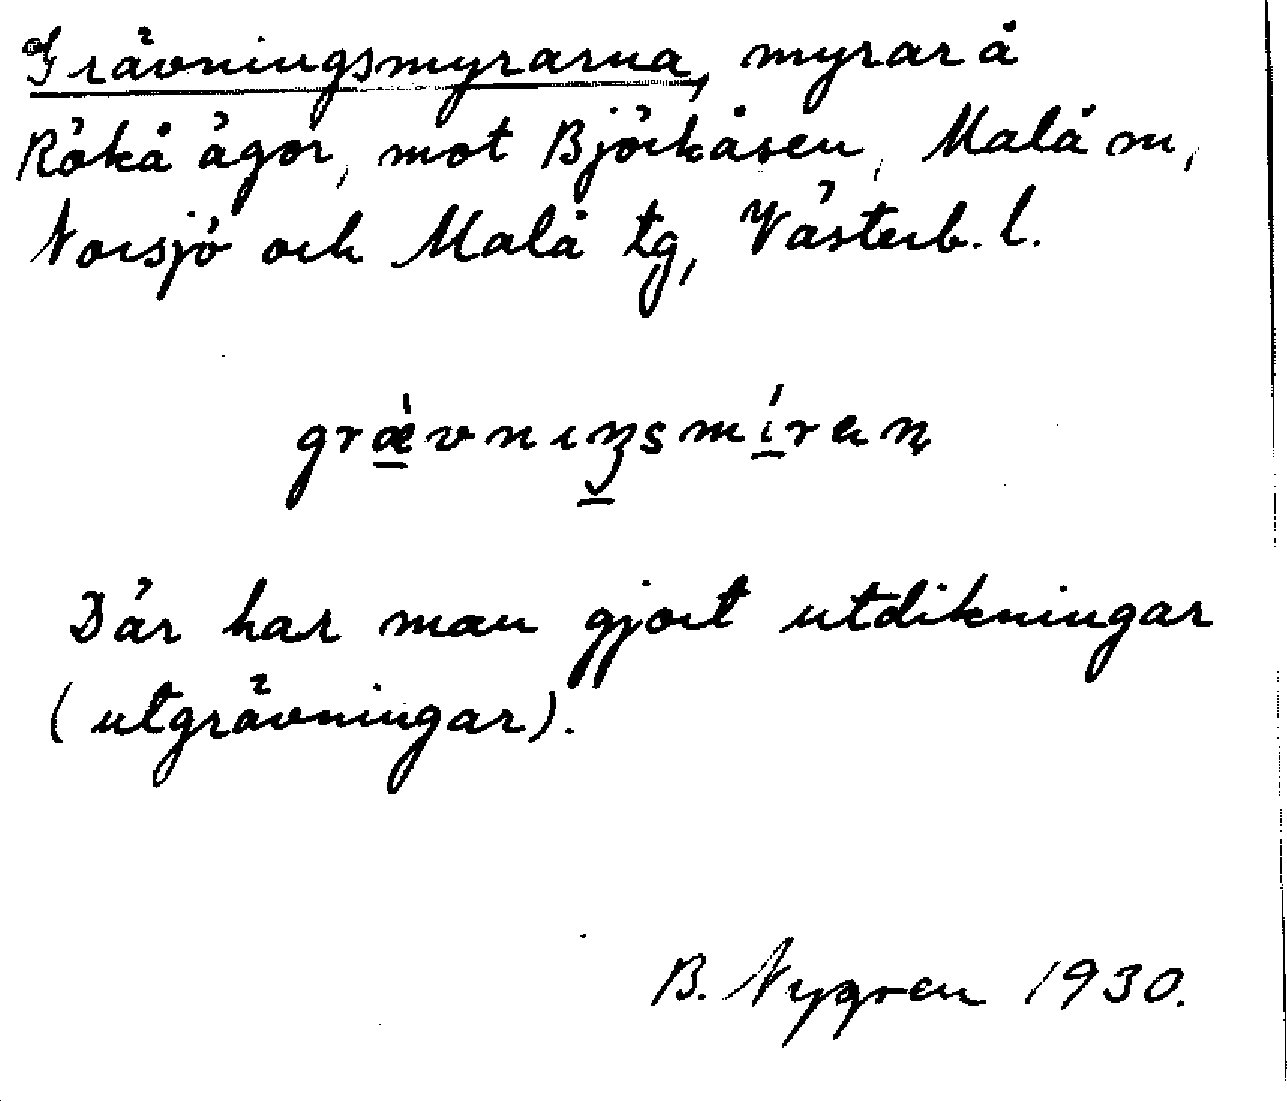 Grävningsmyrarna, myrar å
Rökå ägor, mot Björkåsen, Malå sn,
Norsjö och Malå tg, Västerb. l.
græ̀vnıŋsmíran
Där har man gjort utdikningar
(utgrävningar).
B. Nygren 1930.